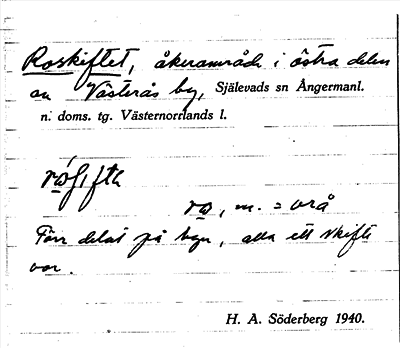 Roskiftet, åkerområde i östra delen
av Västerås by, Själevads sn Ångermanl.
n. doms. tg. Västernorrlands l.
, m. = vrå
Förr delat på byn, alla ett skifte
var.
H. A. Söderberg 1940.